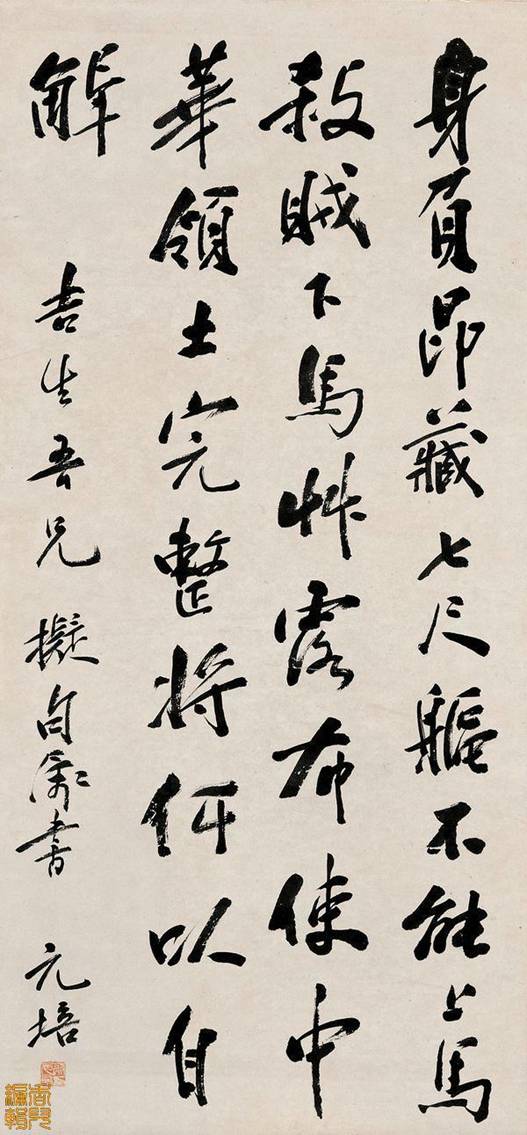 身負昂藏七尺軀不能上馬
殺賊下馬艸露布使中
華領土完整將何以自
解
吉生吾兄擬句屬書
元培